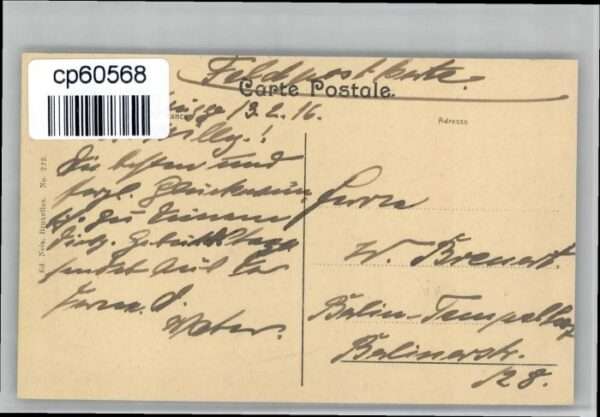 cp60568
Feldpostkarte.
Carte Postale.
13.2.16.
Adresse
Willy!
Die besten und
herzl. Glückwün
zu Deinem
dies. Geburtstage
sendet
Ed. Nels, Bruxelles. No. 272.
Herrn
W. Brenert.
Berlin-Tempelhof
Berlinerstr.
128.